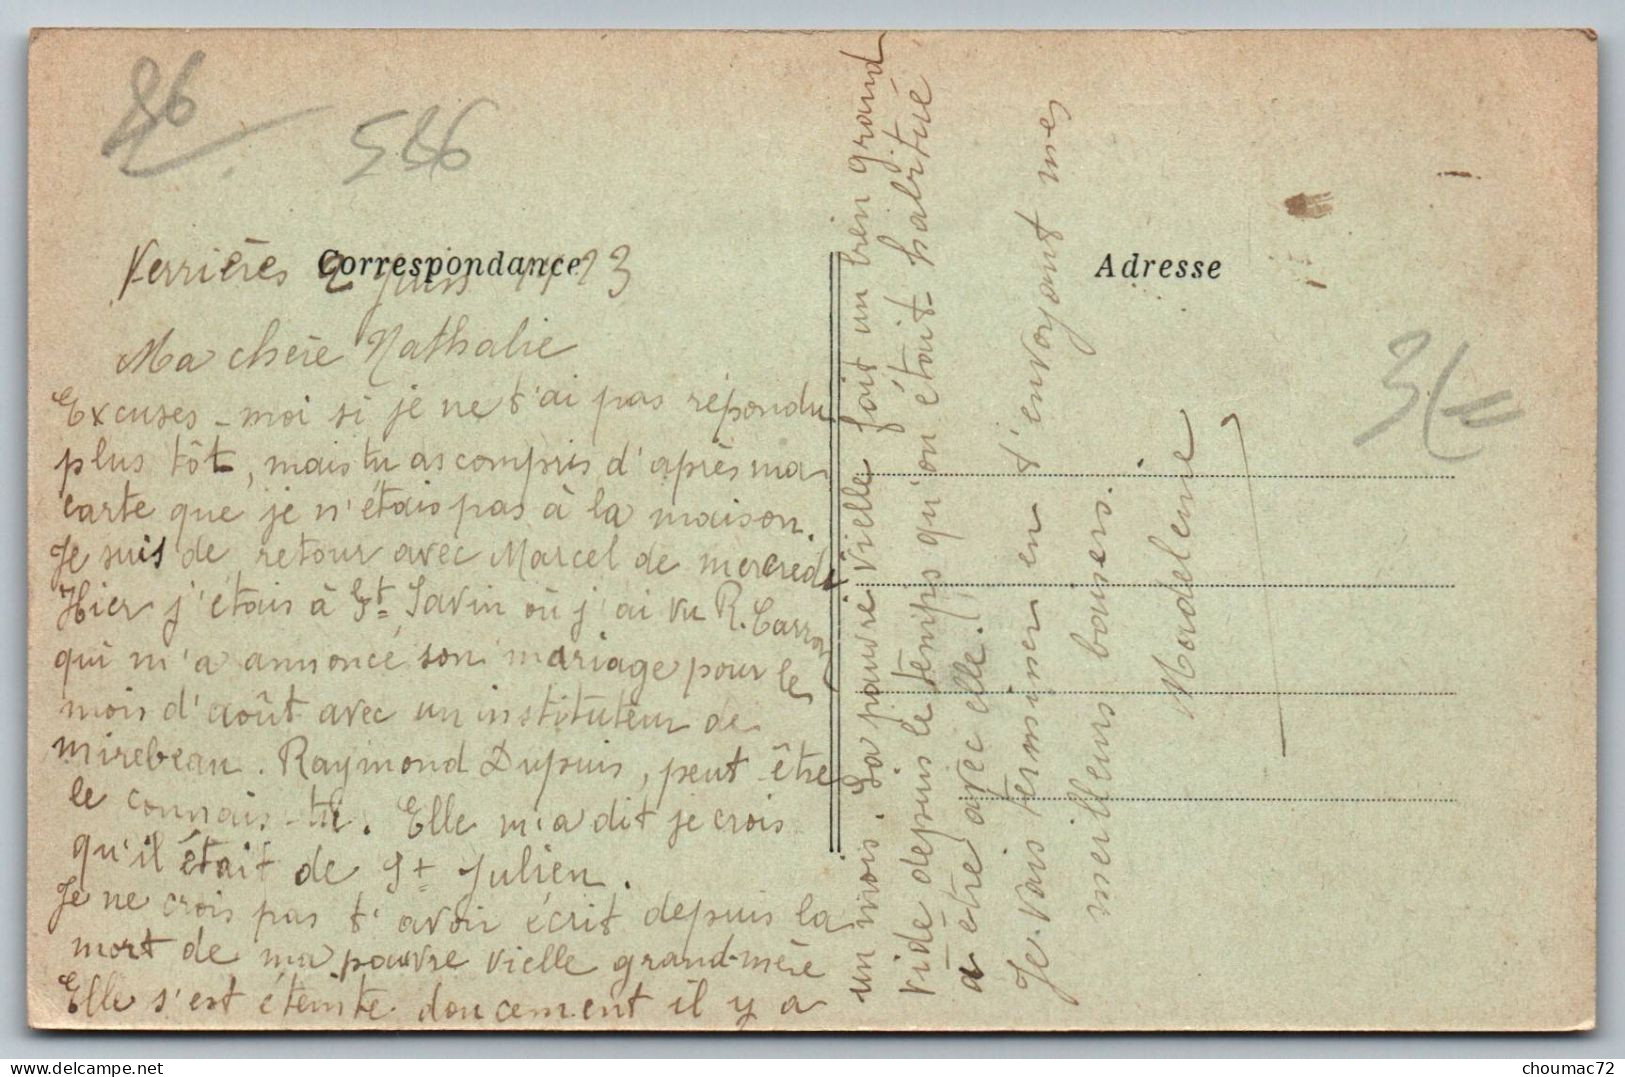 86
586
Correspondance
Adresse
Verrières 2 juin 1923
Ma chère Nathalie
Excuses-moi si je ne t'ai pas répondu
plus tôt, mais tu as compris d'après ma
carte que je n'étais pas à la maison.
Je suis de retour avec Marcel de mercredi
Hier j'étais à St Savin où j'ai vu R.
qui m'a annoncé son mariage pour le
mois d'août avec un instituteur de
mirebeau. Raymond Dupuis, peut être
le connais-tu. Elle m'a dit je crois
qu'il était de St Julien.
Je ne crois pas t'avoir écrit depuis la
mort de ma pauvre vielle grand-mère
Elle s'est éteinte doucement il y a
un mois. La pauvre vielle fait un bien grand
vide depuis le temps qu'on était habitué
a être avec elle.
Je vais terminer en t'envoyant mes
meilleurs baisers.
Madeleine
3€
choumac72